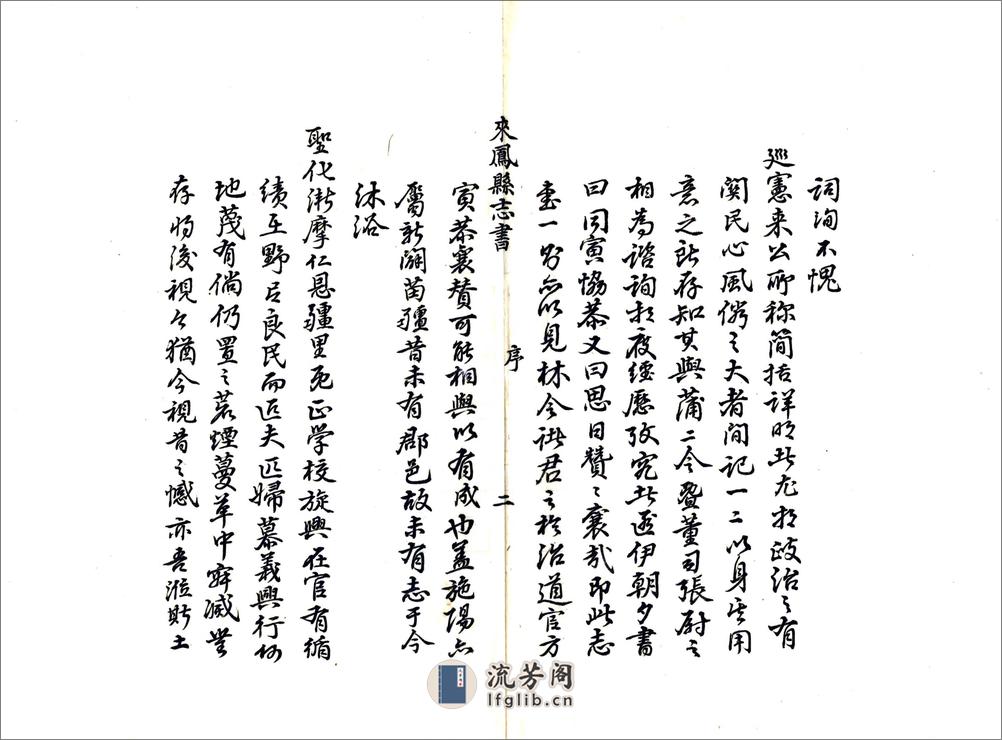 詞洵不愧
巡憲来公所称简括詳明者尤於政治之有
関民心風俗之大者间記一二以身其用
意之所存知其與蒲二令暨董司張尉之
相為諮詢于疫經歷攷究者匪伊朝夕書
曰同寅恊恭又曰思日贊贊襄哉即此志
畫一則亦以見林令諸君之於治道官方
寅恭襄賛可能相與以有成也盖施陽六
屬新闢苗疆昔未有郡邑故未有志于今
沐浴
聖化漸摩仁恩疆里既正学校旋興在官有循
績在野皆良民而匹夫匹婦慕義興行
地蔑有倘仍置之荒煙蔓草中寂滅無
存将後視今猶今視昔之憾亦吾涖斯土
來鳳縣志書
序
二
流芳阁
lfglib.cn